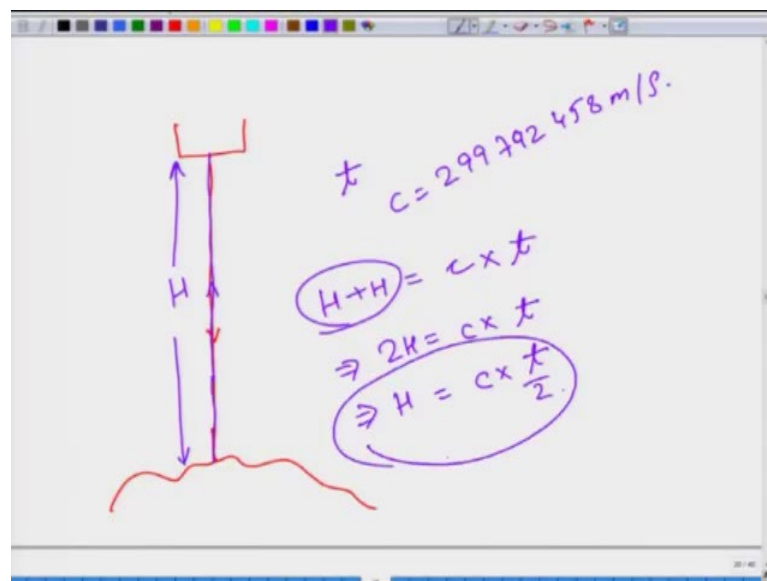 t
C = 299792458 m/s.
H
H+H = c x t
⇒ 2H = c x t
⇒ H = c x t/2.